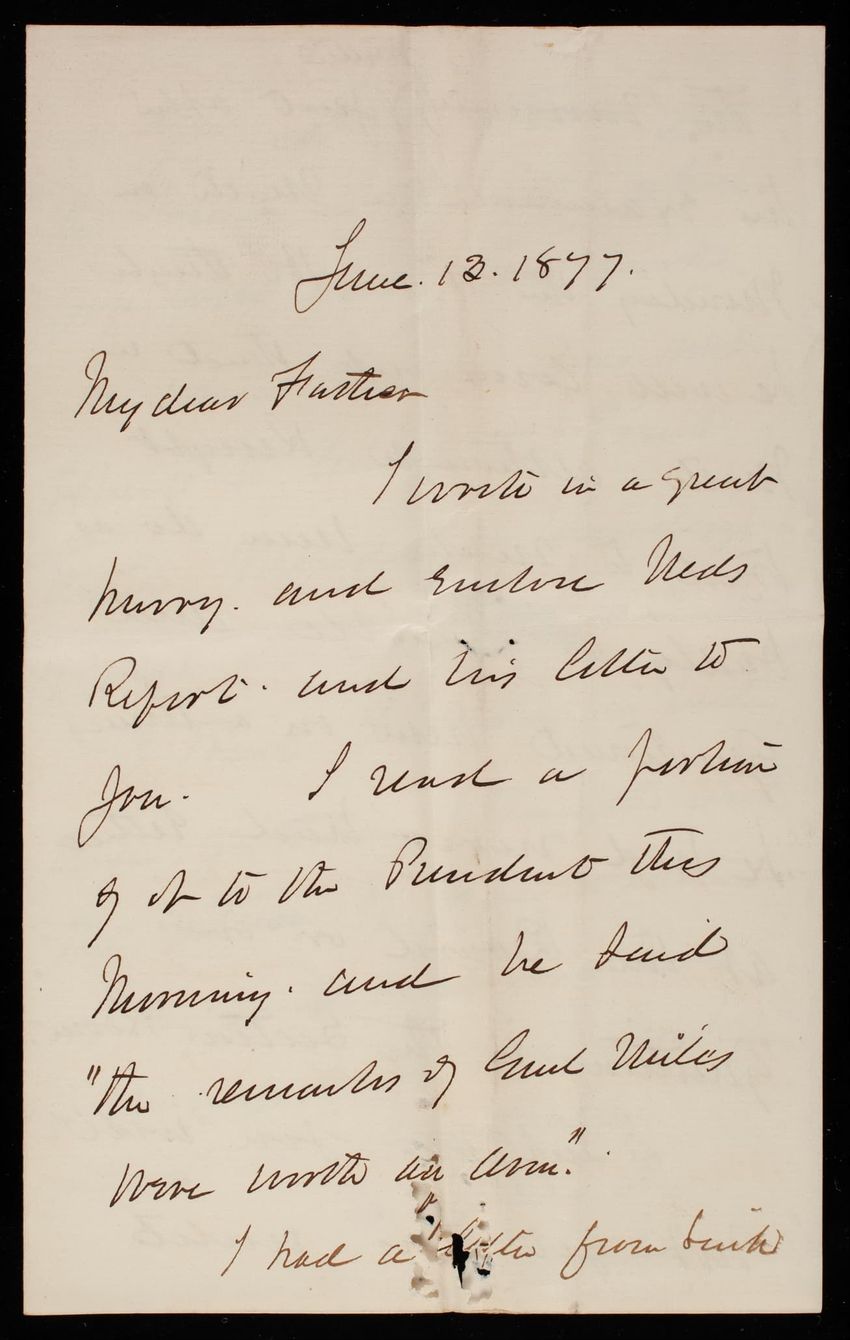 June. 13. 1877.
My dear Father
I write in a great
hurry. and enclose Neds
Report. and his letter to
you. I read a portion
of it to the President this
Morning. and he said
"the remarks of Genl Miles
were worth an arm".
I had a letter from